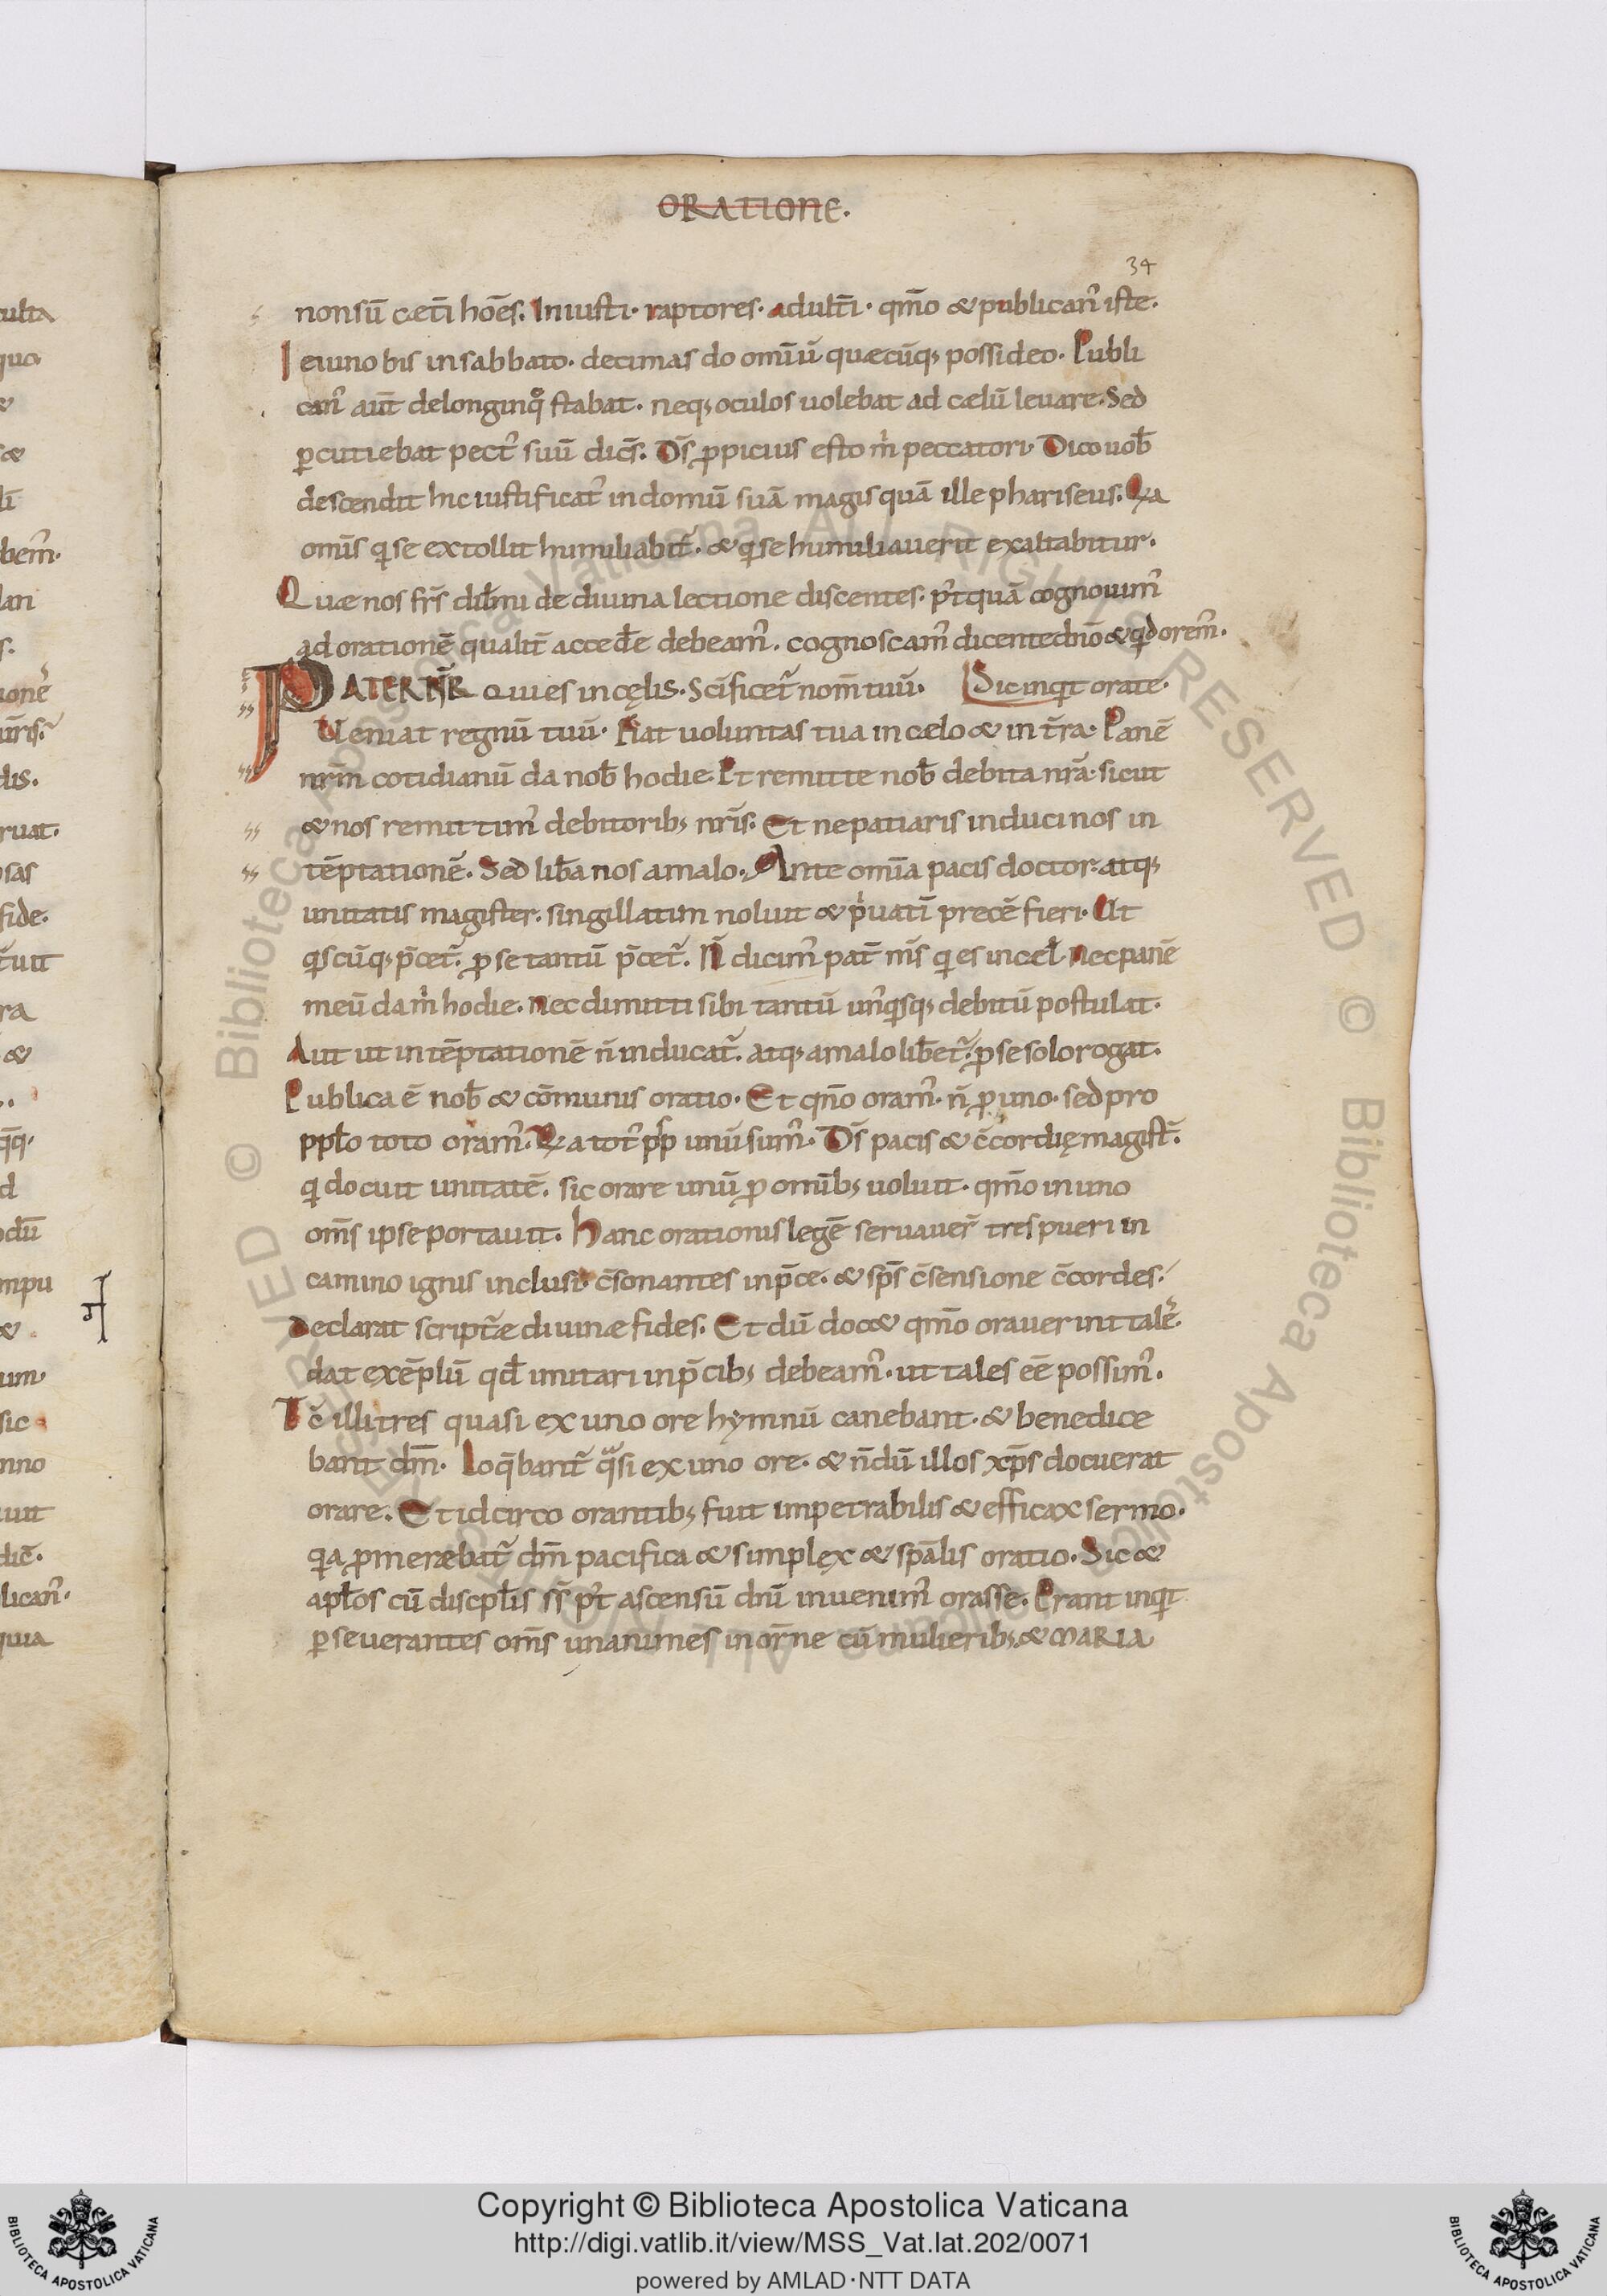 ORATIONE.
34
non sū cet̄i hōes. Iniusti· raptores· adult̄i· qm̄o & publican᷒ iste.
Ieiuno bis in sabbato. decimas do omīū quæcūq; possideo. Publi
can᷒ aūt de longinqͦ stabat. neq; oculos uolebat ad cælū leuare. Sed
ꝑcutiebat pect᷒ suū dic̄s. D̄s ꝓpicius esto m̄ peccatori. Dico uob̄
descendit hic iustificat᷒ in domū suā magis quā ille phariseus. Qa
omīs qi se extollit humiliabit̄. & qi se humiliauerit exaltabitur.
Quæ nos fr̄s dilb̄mi de diuina lectione discentes. p᷒tquā cognouim᷒
ad orationē qualit̄ acced̄e debeam᷒. cognoscam᷒ dicente dn̄o & qd orem᷒.
PATER NR̄ Qui es in cęlis. Sc̄ificet̄ nom̄ tuū. Sic inqit orate.
Ueniat regnū tuū. Fiat uoluntas tua in cælo & in t̄ra. Panē
nr̄m cotidianū da nob̄ hodie. Et remitte nob̄ debita nr̄a. sicut
& nos remittim᷒ debitorib; nr̄is. Et ne patiaris induci nos in
tēptationē. Sed lib̄a nos a malo. Ante om̄ia pacis doctor. atq;
unitatis magister. singillatim noluit & pⁱuatī precē fieri. Ut
qiscūq; p̄cet̄. ꝓ se tantū p̄cet̄. N̄ dicim᷒ pat̄ m̄s qi es in cel̄. Nec panē
meū da mⁱ hodie. Nec dimitti sibi tantū un᷒qisq; debitū postulat.
Aut ut in tēptationē n̄ inducat̄. atq; a malo lib̄et̄. ꝓ se solo rogat.
Publica ē nob̄ & cōmunis oratio. Et qn̄o oram᷒. n̄ ꝓ uno. sed pro
ppl̄o toto oram᷒. Qa tot᷒ pp᷒l unū sum᷒. D̄s pacis & c̄cordię magist̄.
qi docuit unitatē. sic orare unū ꝓ omīb; uoluit. qm̄o in uno
om̄s ipse portauit. Hanc orationis legē seruauer̄ tres pueri in
camino ignis inclusi. c̄sonantes in p̄ce. & sp̄s c̄sensione c̄cordes.
Declarat script̄æ diuinæ fides. Et dū doc& qm̄o orauerint tales.
dat exēplū qd̄ imitari in p̄cib; debeam᷒. ut tales eē possim᷒.
Tc̄ illi tres quasi ex uno ore hymnū canebant. & benedice
bant dm̄. Loq̄bant̄ qᵃsi ex uno ore. & n̄dū illos xp̄s docuerat
orare. Et idcirco orantib; fuit impetrabilis & efficax sermo.
qia ꝓmerebat̄ dm̄ pacifica & simplex & sp̄alis oratio. Sic &
apl̄os cū discpl̄is ss̄ p᷒t ascensū dn̄i inuenim᷒ orasse. Erant inqit
ꝑseuerantes om̄s unanimes in or̄ne cū mulierib; & MARIA
Copyright © Biblioteca Apostolica Vaticana
http://digi.vatlib.it/view/MSS_Vat.lat.202/0071
powered by AMLAD·NTT DATA